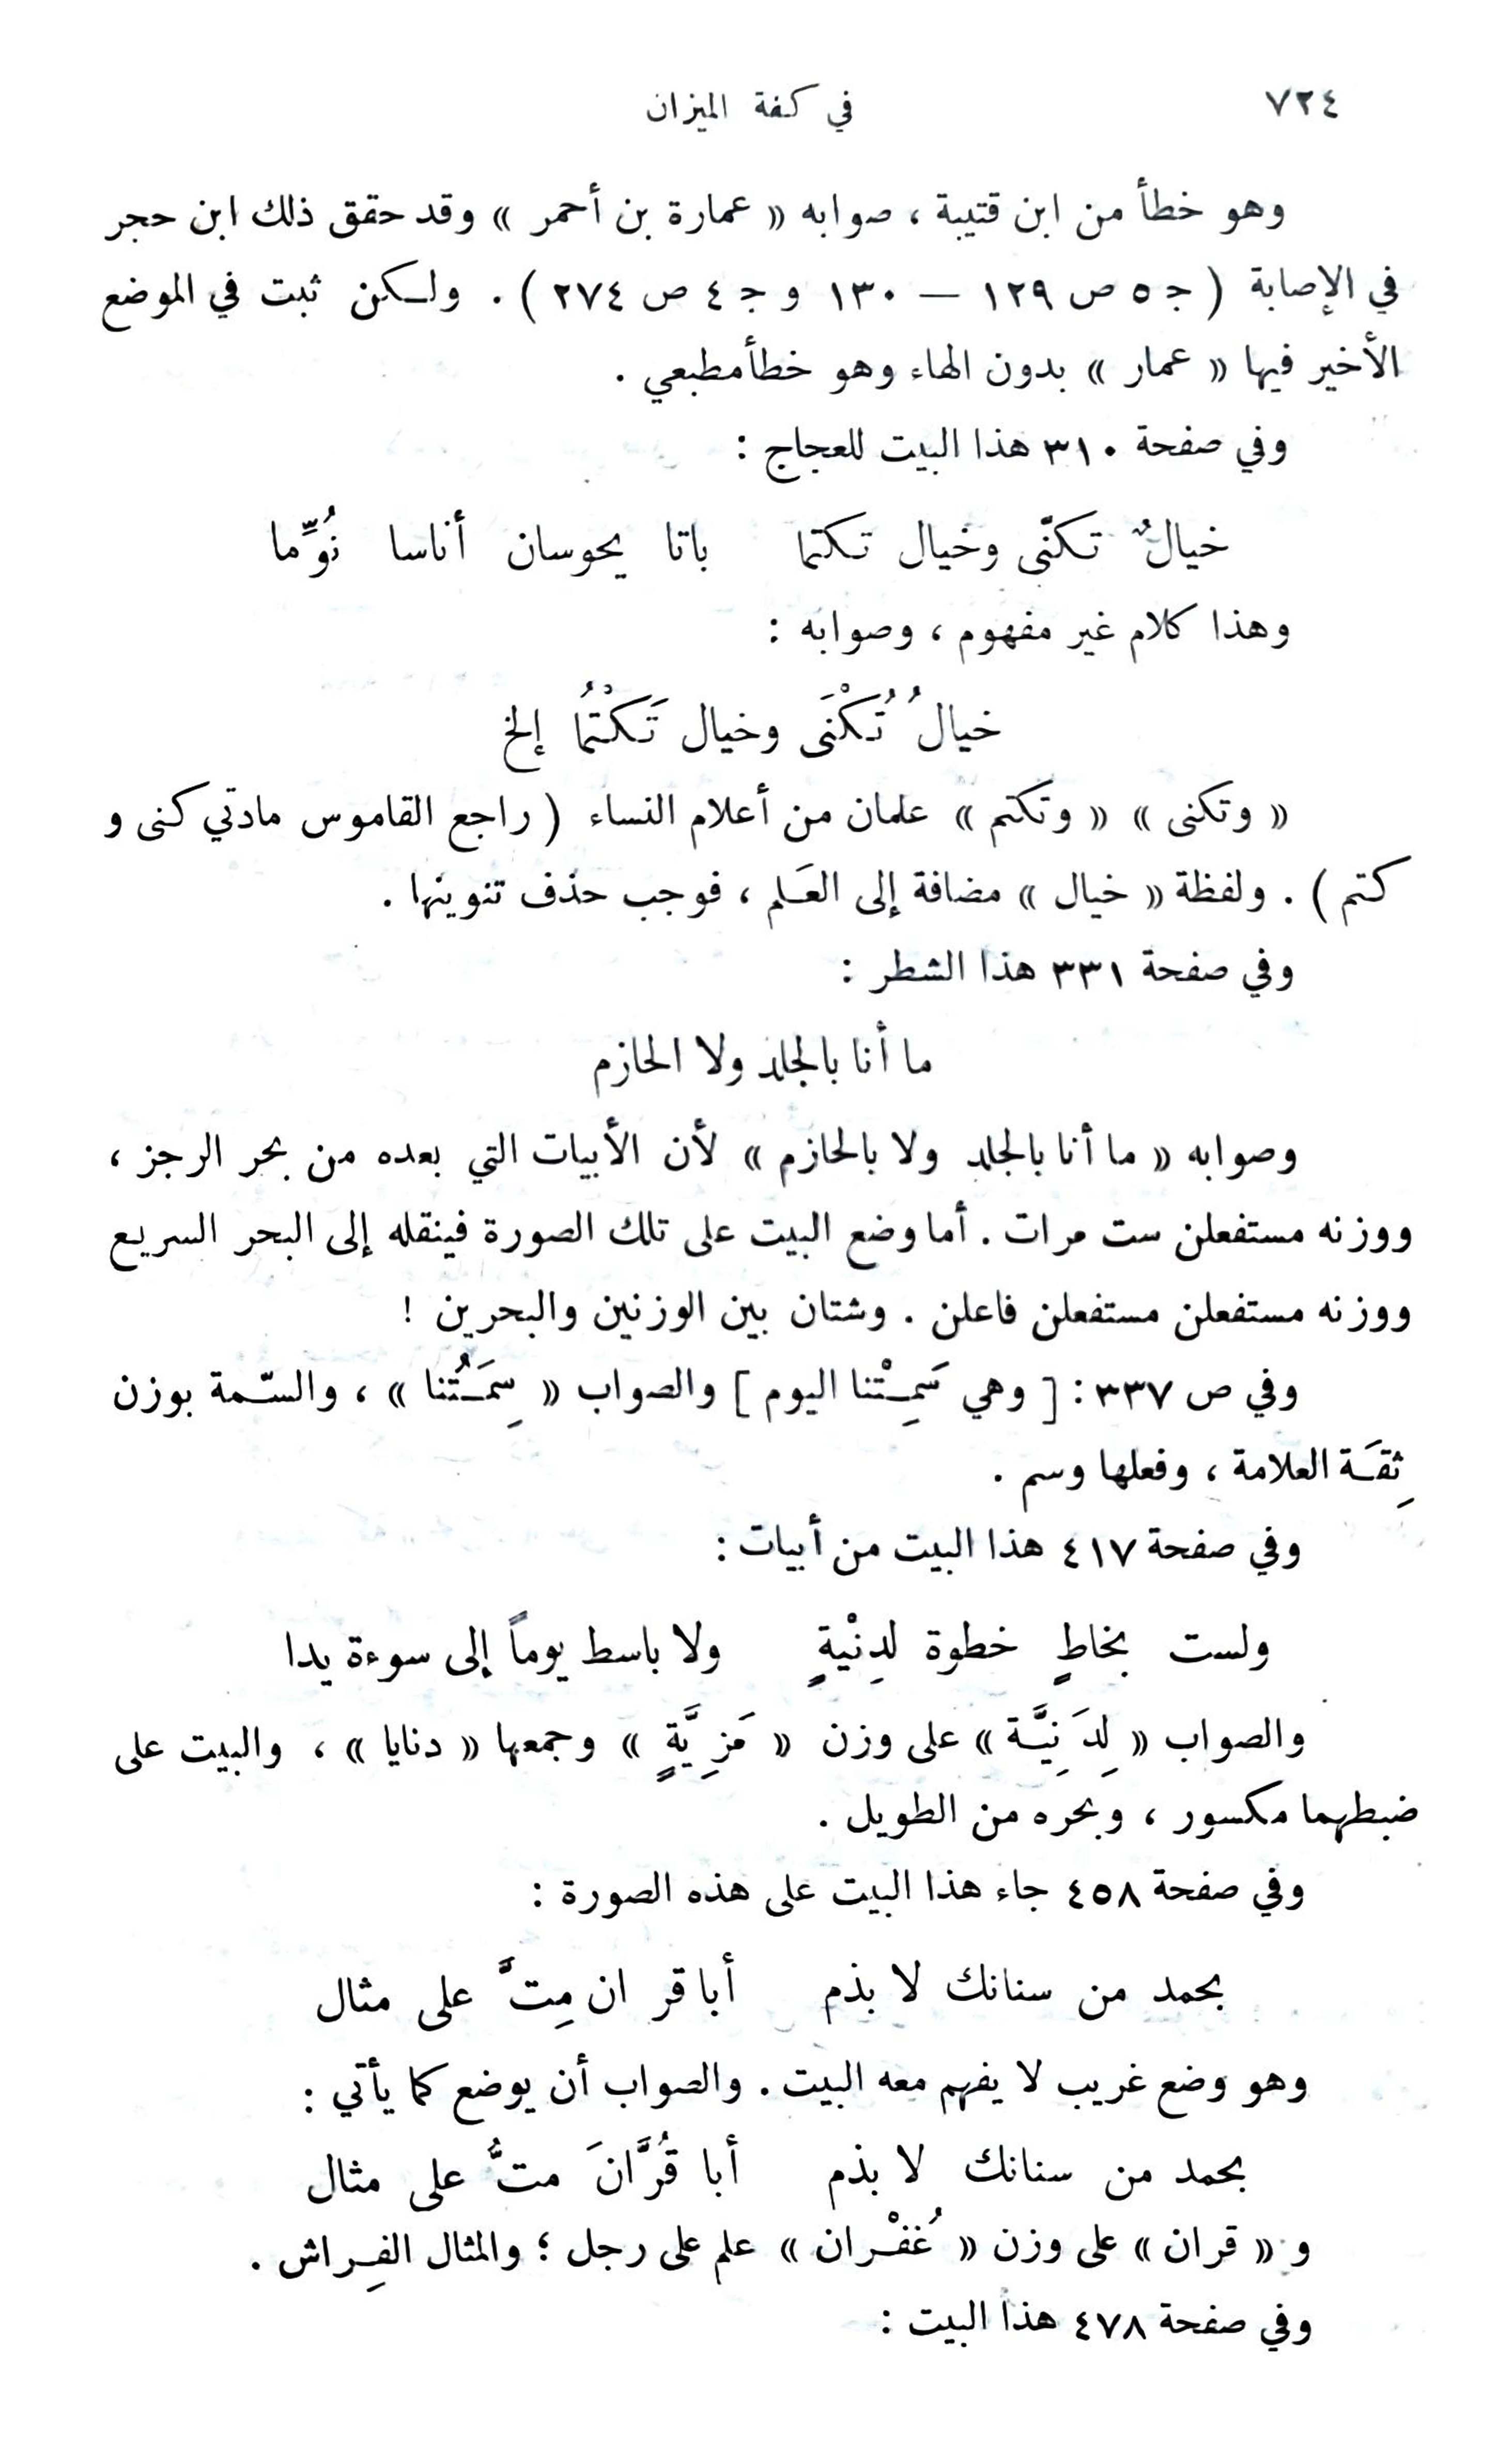 ٧٢٤ في كفة الميزان
وهو خطأ من ابن قتيبة ، صوابه « عمارة بن أحمر » وقد حقق ذلك ابن حجر
في الإصابة ( ج ٥ ص ١٢٩ — ١٣٠ و ج ٤ ص ٢٧٤ ) . ولكن ثبت في الموضع
الأخير فيها « عمار » بدون الهاء وهو خطأ مطبعي .
وفي صفحة ٣١٠ هذا البيت للعجاج :
خيالٌ تكنّى وخيال تكتما باتا يحوسان أناسا نُوِّما
وهذا كلام غير مفهوم ، وصوابه :
خيالُ تُكْنَى وخيال تَكْتُما إلخ
« وتكنى » « وتكتم » علمان من أعلام النساء ( راجع القاموس مادتي كنى و
كتم ) . ولفظة « خيال » مضافة إلى العَلم ، فوجب حذف تنوينها .
وفي صفحة ٣٣١ هذا الشطر :
ما أنا بالجلد ولا الحازم
وصوابه « ما أنا بالجلد ولا بالحازم » لأن الأبيات التي بعده من بحر الرجز ،
ووزنه مستفعلن ست مرات . أما وضع البيت على تلك الصورة فينقله إلى البحر السريع
ووزنه مستفعلن مستفعلن فاعلن . وشتان بين الوزنين والبحرين !
وفي ص ٣٣٧ : [ وهي سَمِتْنا اليوم ] والصواب « سِمَتُنا » ، والسّمة بوزن
ثِقَة العلامة ، وفعلها وسم .
وفي صفحة ٤١٧ هذا البيت من أبيات :
ولست بخاطٍ خطوة لدِنْيةٍ ولا باسط يوماً إلى سوءة يدا
والصواب « لِدَنِيَّة » على وزن « مَزِيَّةٍ » وجمعها « دنايا » ، والبيت على
ضبطهما مكسور ، وبحره من الطويل .
وفي صفحة ٤٥٨ جاء هذا البيت على هذه الصورة :
بحمد من سنانك لا بذم أبا قر ان مِتَّ على مثال
وهو وضع غريب لا يفهم معه البيت . والصواب أن يوضع كما يأتي :
بحمد من سنانك لا بذم أبا قُرَّانَ متُّ على مثال
و « قران » على وزن « غُفْران » علم على رجل ؛ والمثال الفِراش .
وفي صفحة ٤٧٨ هذا البيت :